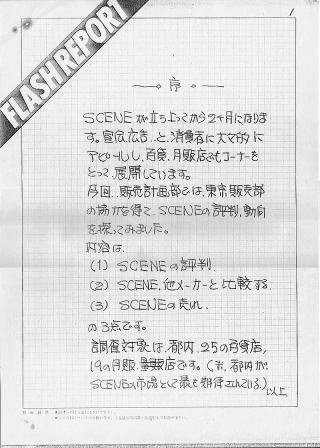 1
FLASH REPORT
序
SCENEが立ち上ってから2ヶ月になりま
す。宣伝広告と、消費者に大々的に
アピールし、百貨、月販店でもコーナーを
とって、展開しています。
今回、販売計画部では、東京販売部
の協力を得て、SCENEの評判、動向
を探ってみました。
内容は、
(1) SCENEの評判
(2) SCENE、他メーカーと比較する
(3) SCENEの売れ
の3点です。
調査対象は、都内、25の百貨店、
19の月販店です。(尚、都内が
SCENEの市場として最も期待されている。)
以上